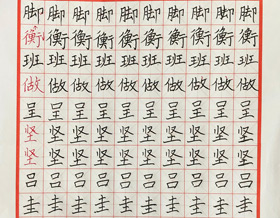 脚脚脚脚脚脚脚脚脚脚
衡衡衡衡衡衡衡衡衡衡
班班班班班班班班班班
做做做做做做做做做做
呈呈呈呈呈呈呈呈呈呈
坚坚坚坚坚坚坚坚坚坚
坚坚坚坚坚坚坚坚坚坚
吕吕吕吕吕吕吕吕吕吕
圭圭圭圭圭圭圭圭圭圭